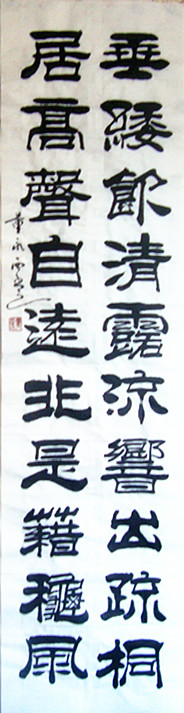 垂緌飲清露流響出疏桐
居高聲自遠非是藉穐風